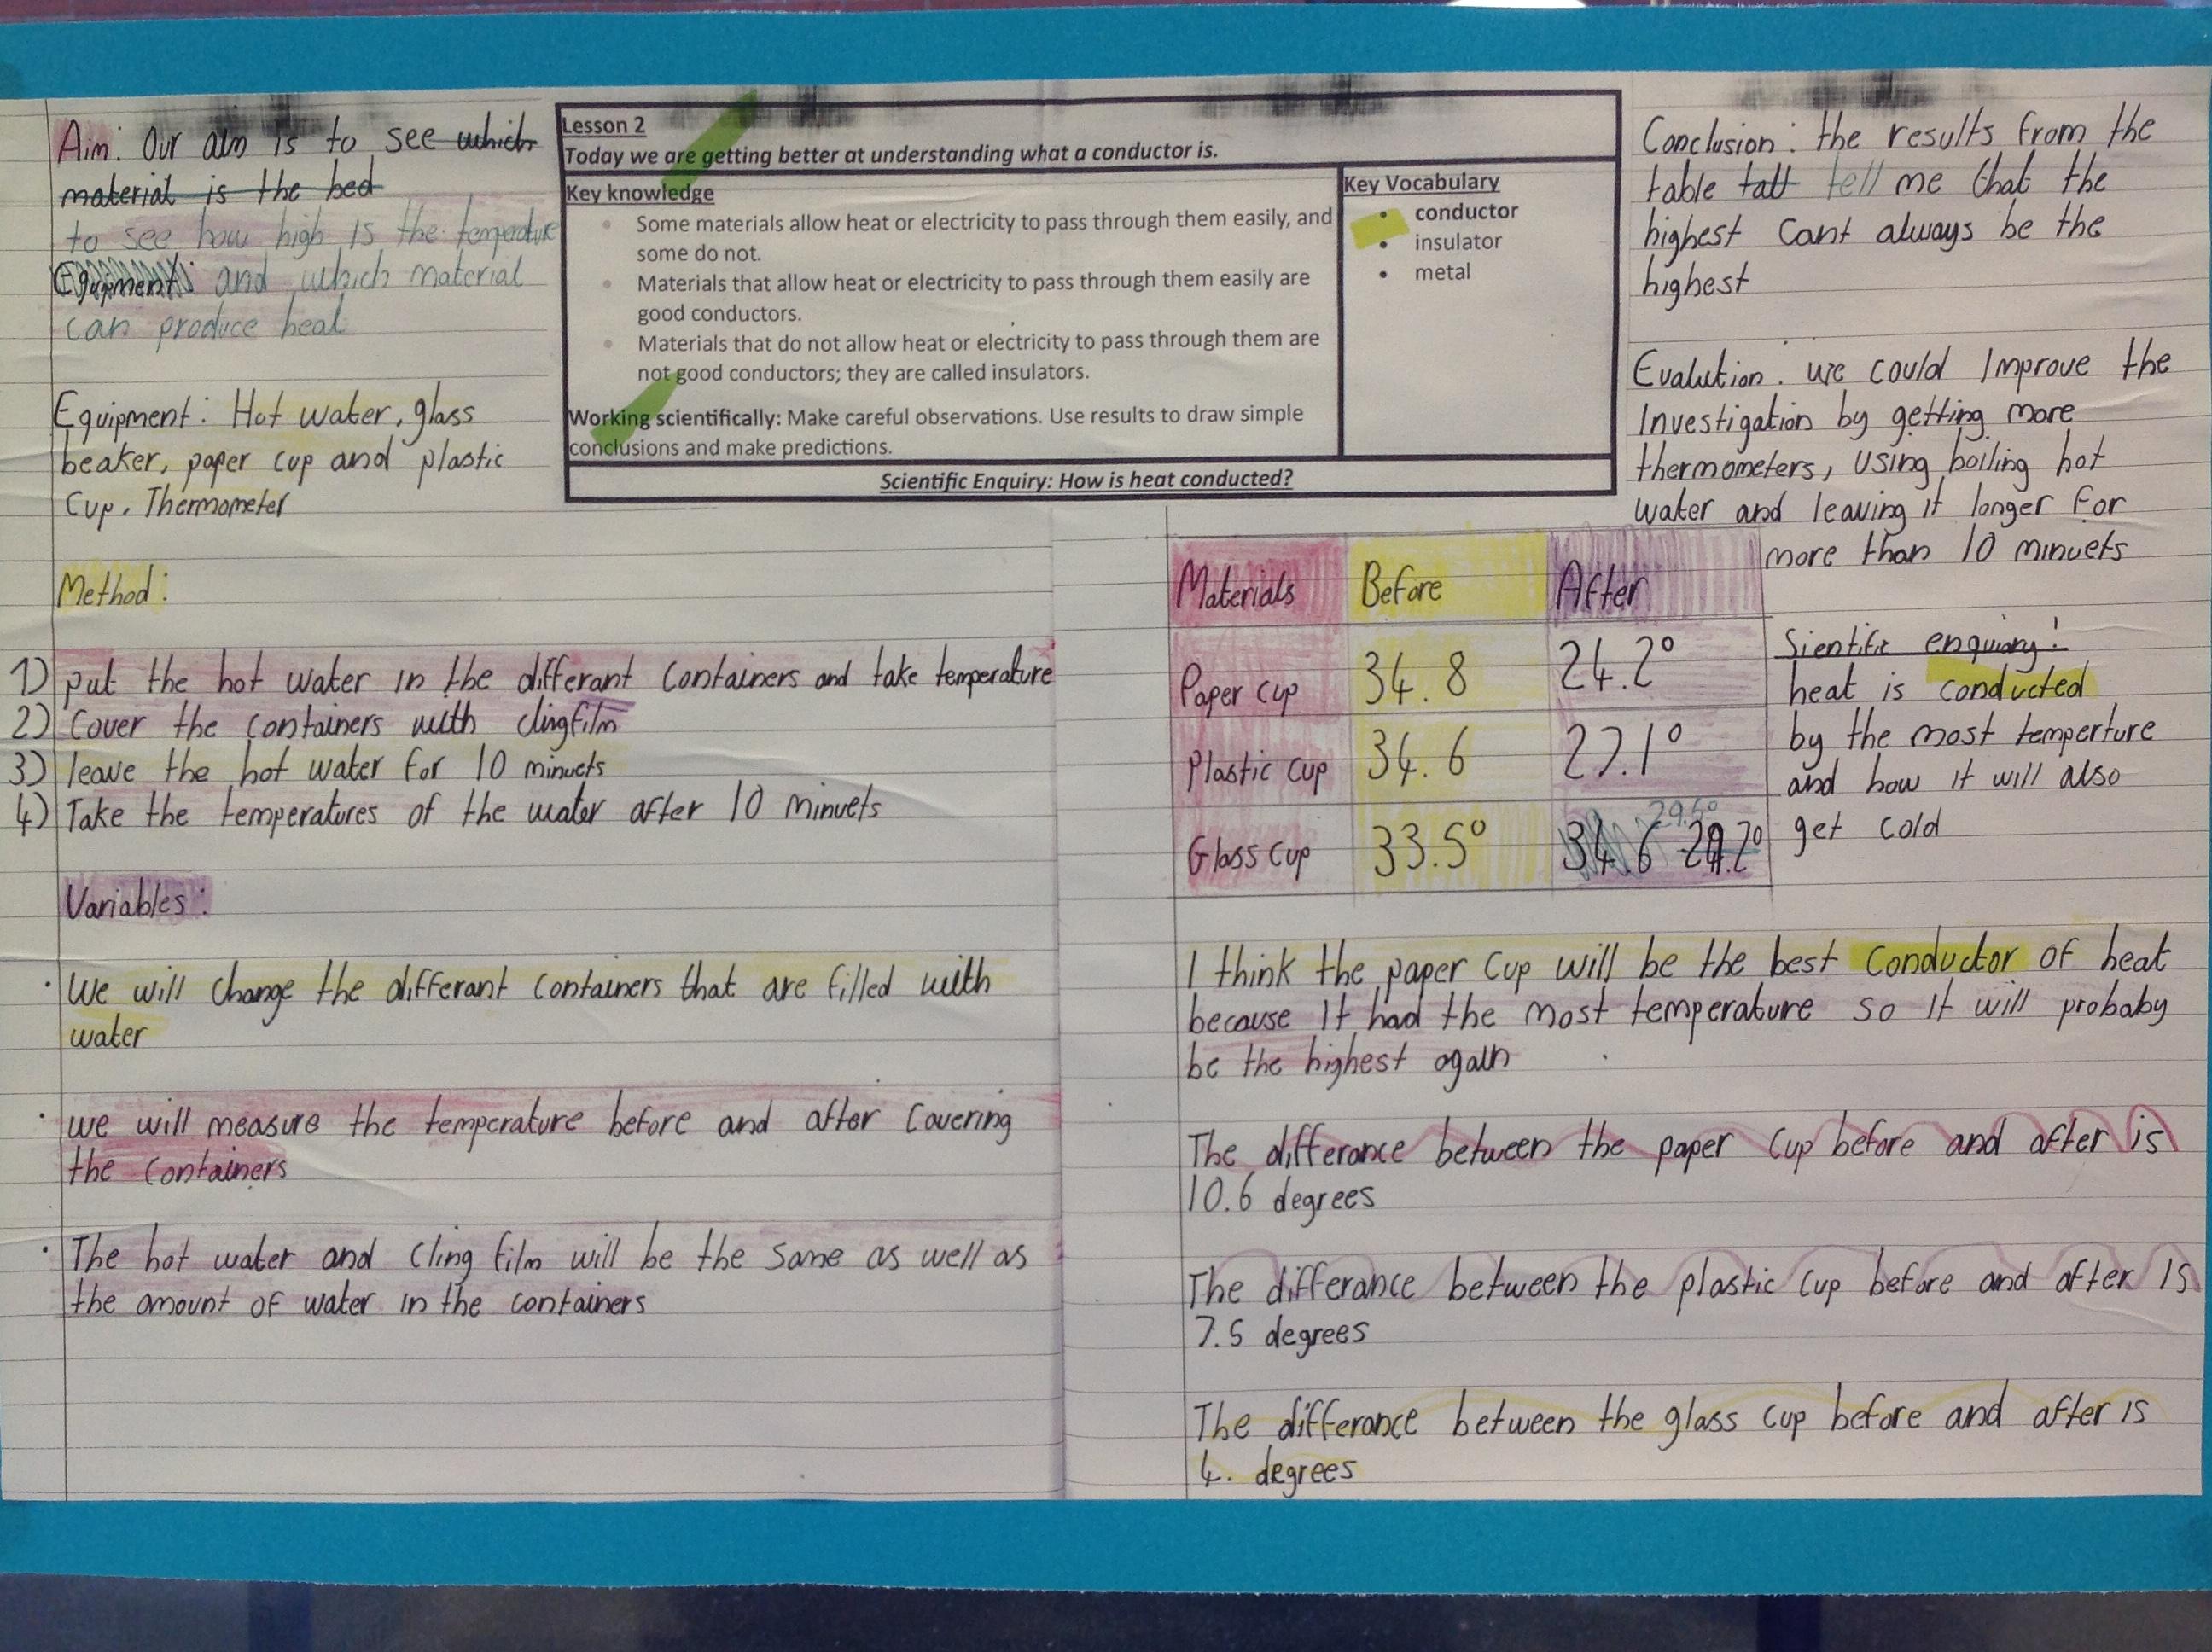 Aim: Our aim is to see which
material is the bed
to see how high is the temperature
Equipment: and which material
can produce heat
Equipment: Hot water, glass
beaker, paper cup and plastic
Cup. Thermometer
Method:
1) put the hot water in the differant containers and take temperature
2) Cover the containers with clingfilm
3) leave the hot water for 10 minuets
4) Take the temperatures of the water after 10 minuets
Variables:
· We will change the differant containers that are filled with
water
· we will measure the temperature before and after covering
the containers
· The hot water and cling film will be the same as well as
the amount of water in the containers
Lesson 2
Today we are getting better at understanding what a conductor is.
Key knowledge
• Some materials allow heat or electricity to pass through them easily, and
some do not.
• Materials that allow heat or electricity to pass through them easily are
good conductors.
• Materials that do not allow heat or electricity to pass through them are
not good conductors; they are called insulators.
Working scientifically: Make careful observations. Use results to draw simple
conclusions and make predictions.
Key Vocabulary
• conductor
• insulator
• metal
Scientific Enquiry: How is heat conducted?
Materials Before After
Paper cup 34.8 24.2°
Plastic cup 34.6 27.1°
Glass cup 33.5° 34.6 29.6°
I think the paper cup will be the best conductor of heat
because it had the most temperature so it will probaby
be the highest again
The differance between the paper cup before and after is
10.6 degrees
The differance between the plastic cup before and after is
7.5 degrees
The differance between the glass cup before and after is
4. degrees
Conclusion: the results from the
table tatt tell me that the
highest cant always be the
highest
Evalution: we could improve the
investigation by getting more
thermometers, using boiling hot
water and leaving it longer for
more than 10 minuets
Sientific enquiry:
heat is conducted
by the most temperture
and how it will also
get cold